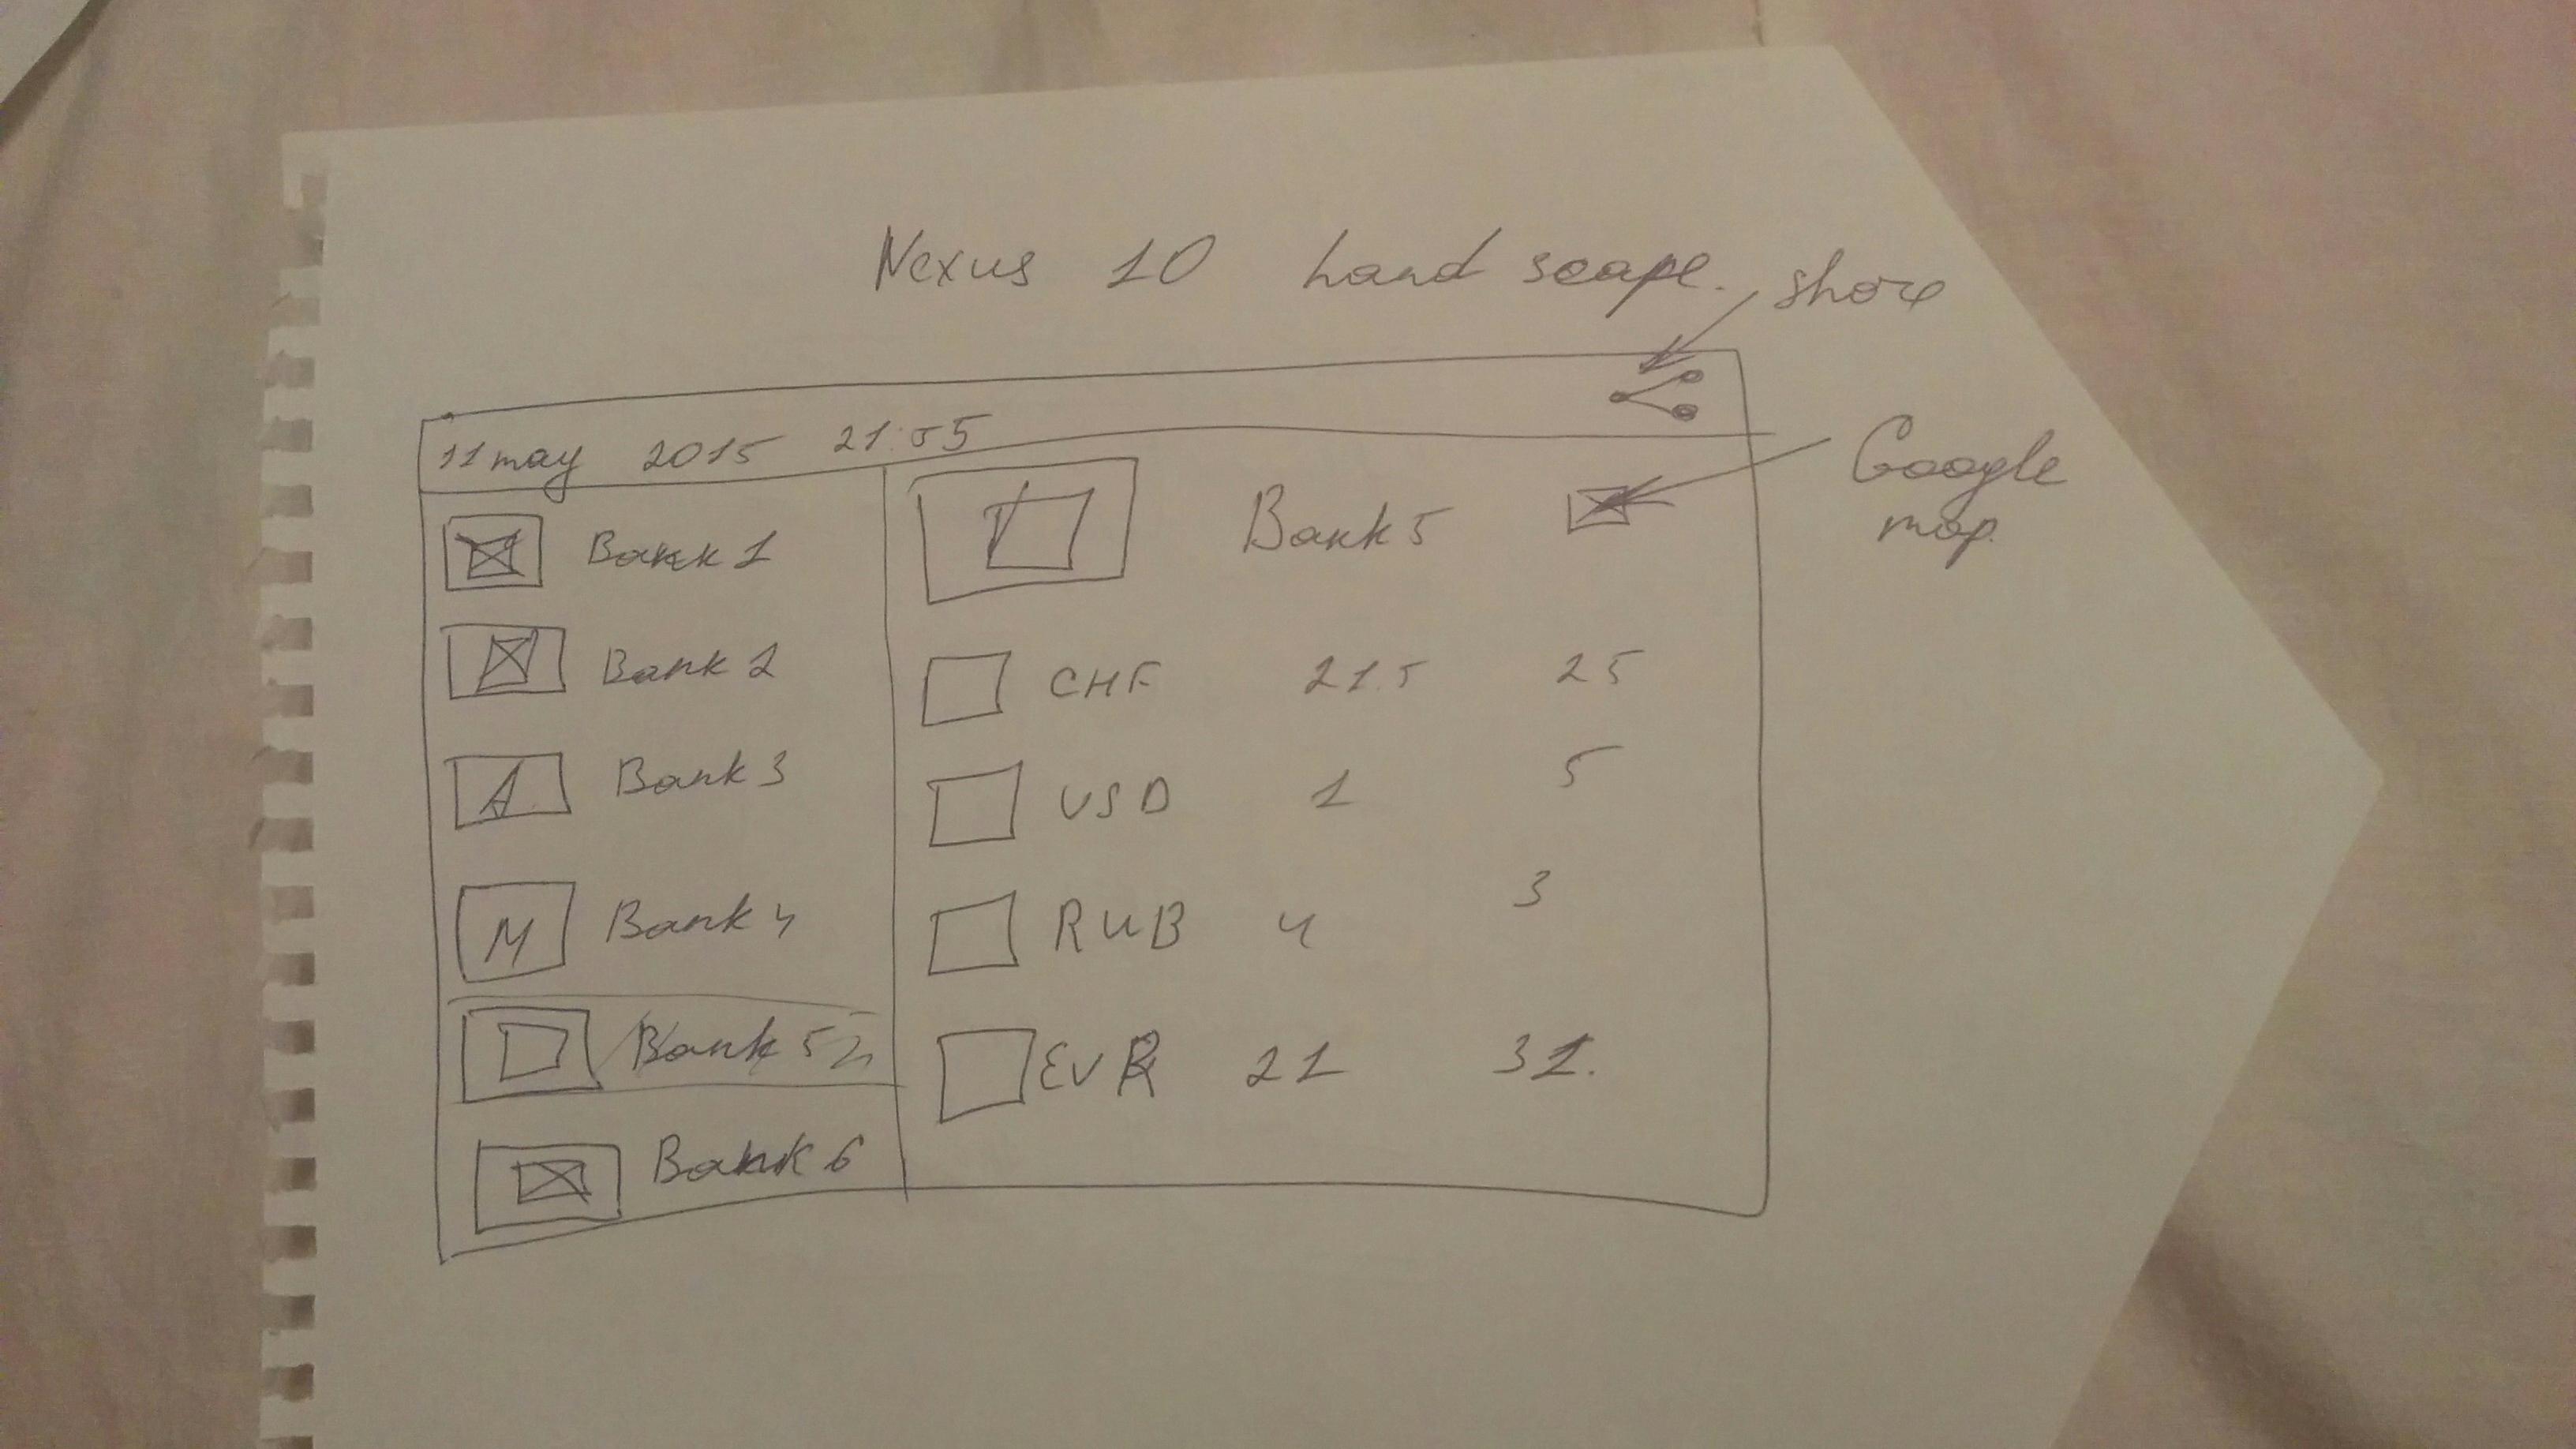 Nexus 10 Land scape.
share
11 may 2015 21:55
Google
map.
Bank 1
Bank 2
A Bank 3
M Bank 4
Bank 5
Bank 6
Bank 5
CHF 21.5 25
USD 1 5
RUB 4 3
EVR 21 31.